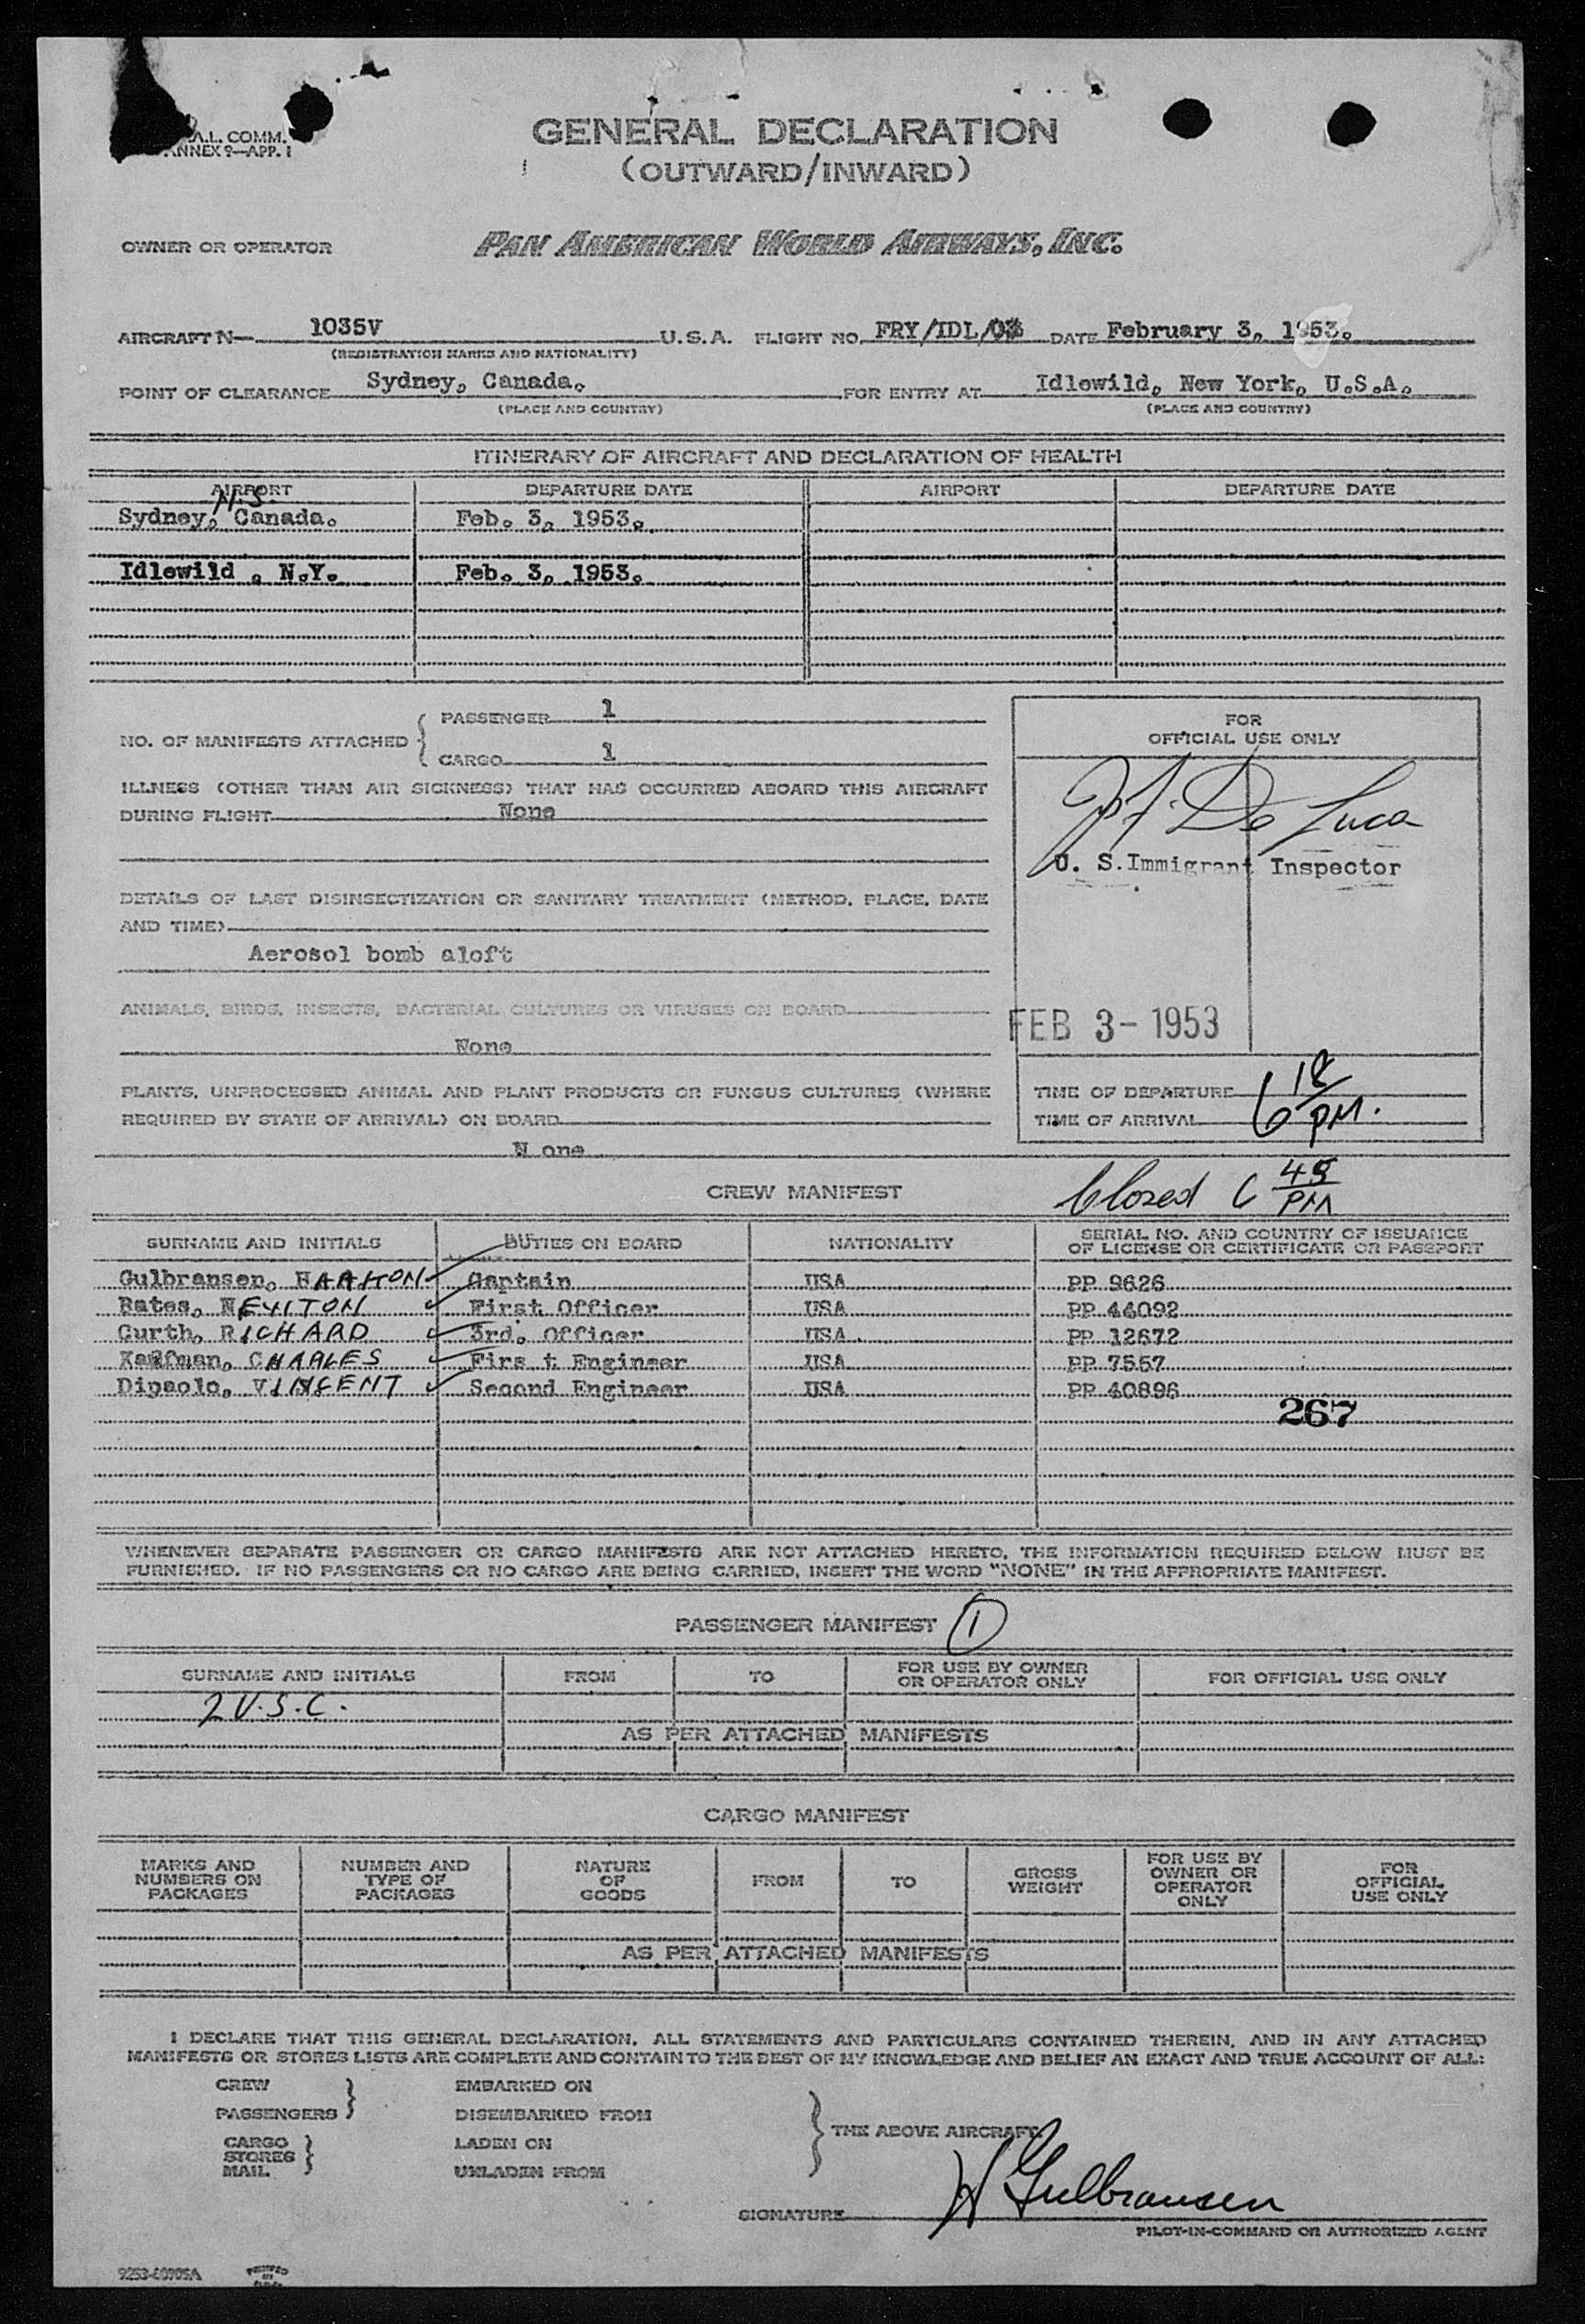 A.L. COMM.
ANNEX 9—APP. 1
GENERAL DECLARATION
(OUTWARD/INWARD)
OWNER OR OPERATOR PAN AMERICAN WORLD AIRWAYS, INC.
AIRCRAFT N— 1035V U.S.A. FLIGHT NO. FRY/IDL/03 DATE February 3, 1953.
(REGISTRATION MARKS AND NATIONALITY)
POINT OF CLEARANCE Sydney, Canada. FOR ENTRY AT Idlewild, New York, U.S.A.
(PLACE AND COUNTRY) (PLACE AND COUNTRY)
ITINERARY OF AIRCRAFT AND DECLARATION OF HEALTH
AIRPORT DEPARTURE DATE AIRPORT DEPARTURE DATE
N.S.
Sydney, Canada. Feb. 3, 1953.
Idlewild , N.Y. Feb. 3, 1953.
NO. OF MANIFESTS ATTACHED { PASSENGER 1
CARGO 1
ILLNESS (OTHER THAN AIR SICKNESS) THAT HAS OCCURRED ABOARD THIS AIRCRAFT
DURING FLIGHT None
DETAILS OF LAST DISINSECTIZATION OR SANITARY TREATMENT (METHOD, PLACE, DATE
AND TIME)
Aerosol bomb aloft
ANIMALS, BIRDS, INSECTS, BACTERIAL CULTURES OR VIRUSES ON BOARD
None
PLANTS, UNPROCESSED ANIMAL AND PLANT PRODUCTS OR FUNGUS CULTURES (WHERE
REQUIRED BY STATE OF ARRIVAL) ON BOARD
N one
FOR
OFFICIAL USE ONLY
De Luca
U. S. Immigrant Inspector
FEB 3 - 1953
TIME OF DEPARTURE
TIME OF ARRIVAL 6 18 PM.
CREW MANIFEST Closed 6 45 PM
SURNAME AND INITIALS DUTIES ON BOARD NATIONALITY SERIAL NO. AND COUNTRY OF ISSUANCE
OF LICENSE OR CERTIFICATE OR PASSPORT
Gulbransen, HAAKON Captain USA PP 9626
Bates, NEWTON First Officer USA PP 44092
Gurth, RICHARD 3rd. Officer USA PP 12672
Kaufman, CHARLES Firs t Engineer USA PP 7557
Dipaolo, VINCENT Second Engineer USA PP 40896
267
WHENEVER SEPARATE PASSENGER OR CARGO MANIFESTS ARE NOT ATTACHED HERETO, THE INFORMATION REQUIRED BELOW MUST BE
FURNISHED. IF NO PASSENGERS OR NO CARGO ARE BEING CARRIED, INSERT THE WORD "NONE" IN THE APPROPRIATE MANIFEST.
PASSENGER MANIFEST 1
SURNAME AND INITIALS FROM TO FOR USE BY OWNER
OR OPERATOR ONLY FOR OFFICIAL USE ONLY
2 U.S.C.
AS PER ATTACHED MANIFESTS
CARGO MANIFEST
MARKS AND
NUMBERS ON
PACKAGES
NUMBER AND
TYPE OF
PACKAGES
NATURE
OF
GOODS
FROM
TO
GROSS
WEIGHT
FOR USE BY
OWNER OR
OPERATOR
ONLY
FOR
OFFICIAL
USE ONLY
AS PER ATTACHED MANIFESTS
I DECLARE THAT THIS GENERAL DECLARATION, ALL STATEMENTS AND PARTICULARS CONTAINED THEREIN, AND IN ANY ATTACHED
MANIFESTS OR STORES LISTS ARE COMPLETE AND CONTAIN TO THE BEST OF MY KNOWLEDGE AND BELIEF AN EXACT AND TRUE ACCOUNT OF ALL:
CREW EMBARKED ON
PASSENGERS DISEMBARKED FROM
THE ABOVE AIRCRAFT
CARGO LADEN ON
STORES
MAIL UNLADEN FROM
SIGNATURE H Gulbransen
PILOT-IN-COMMAND OR AUTHORIZED AGENT